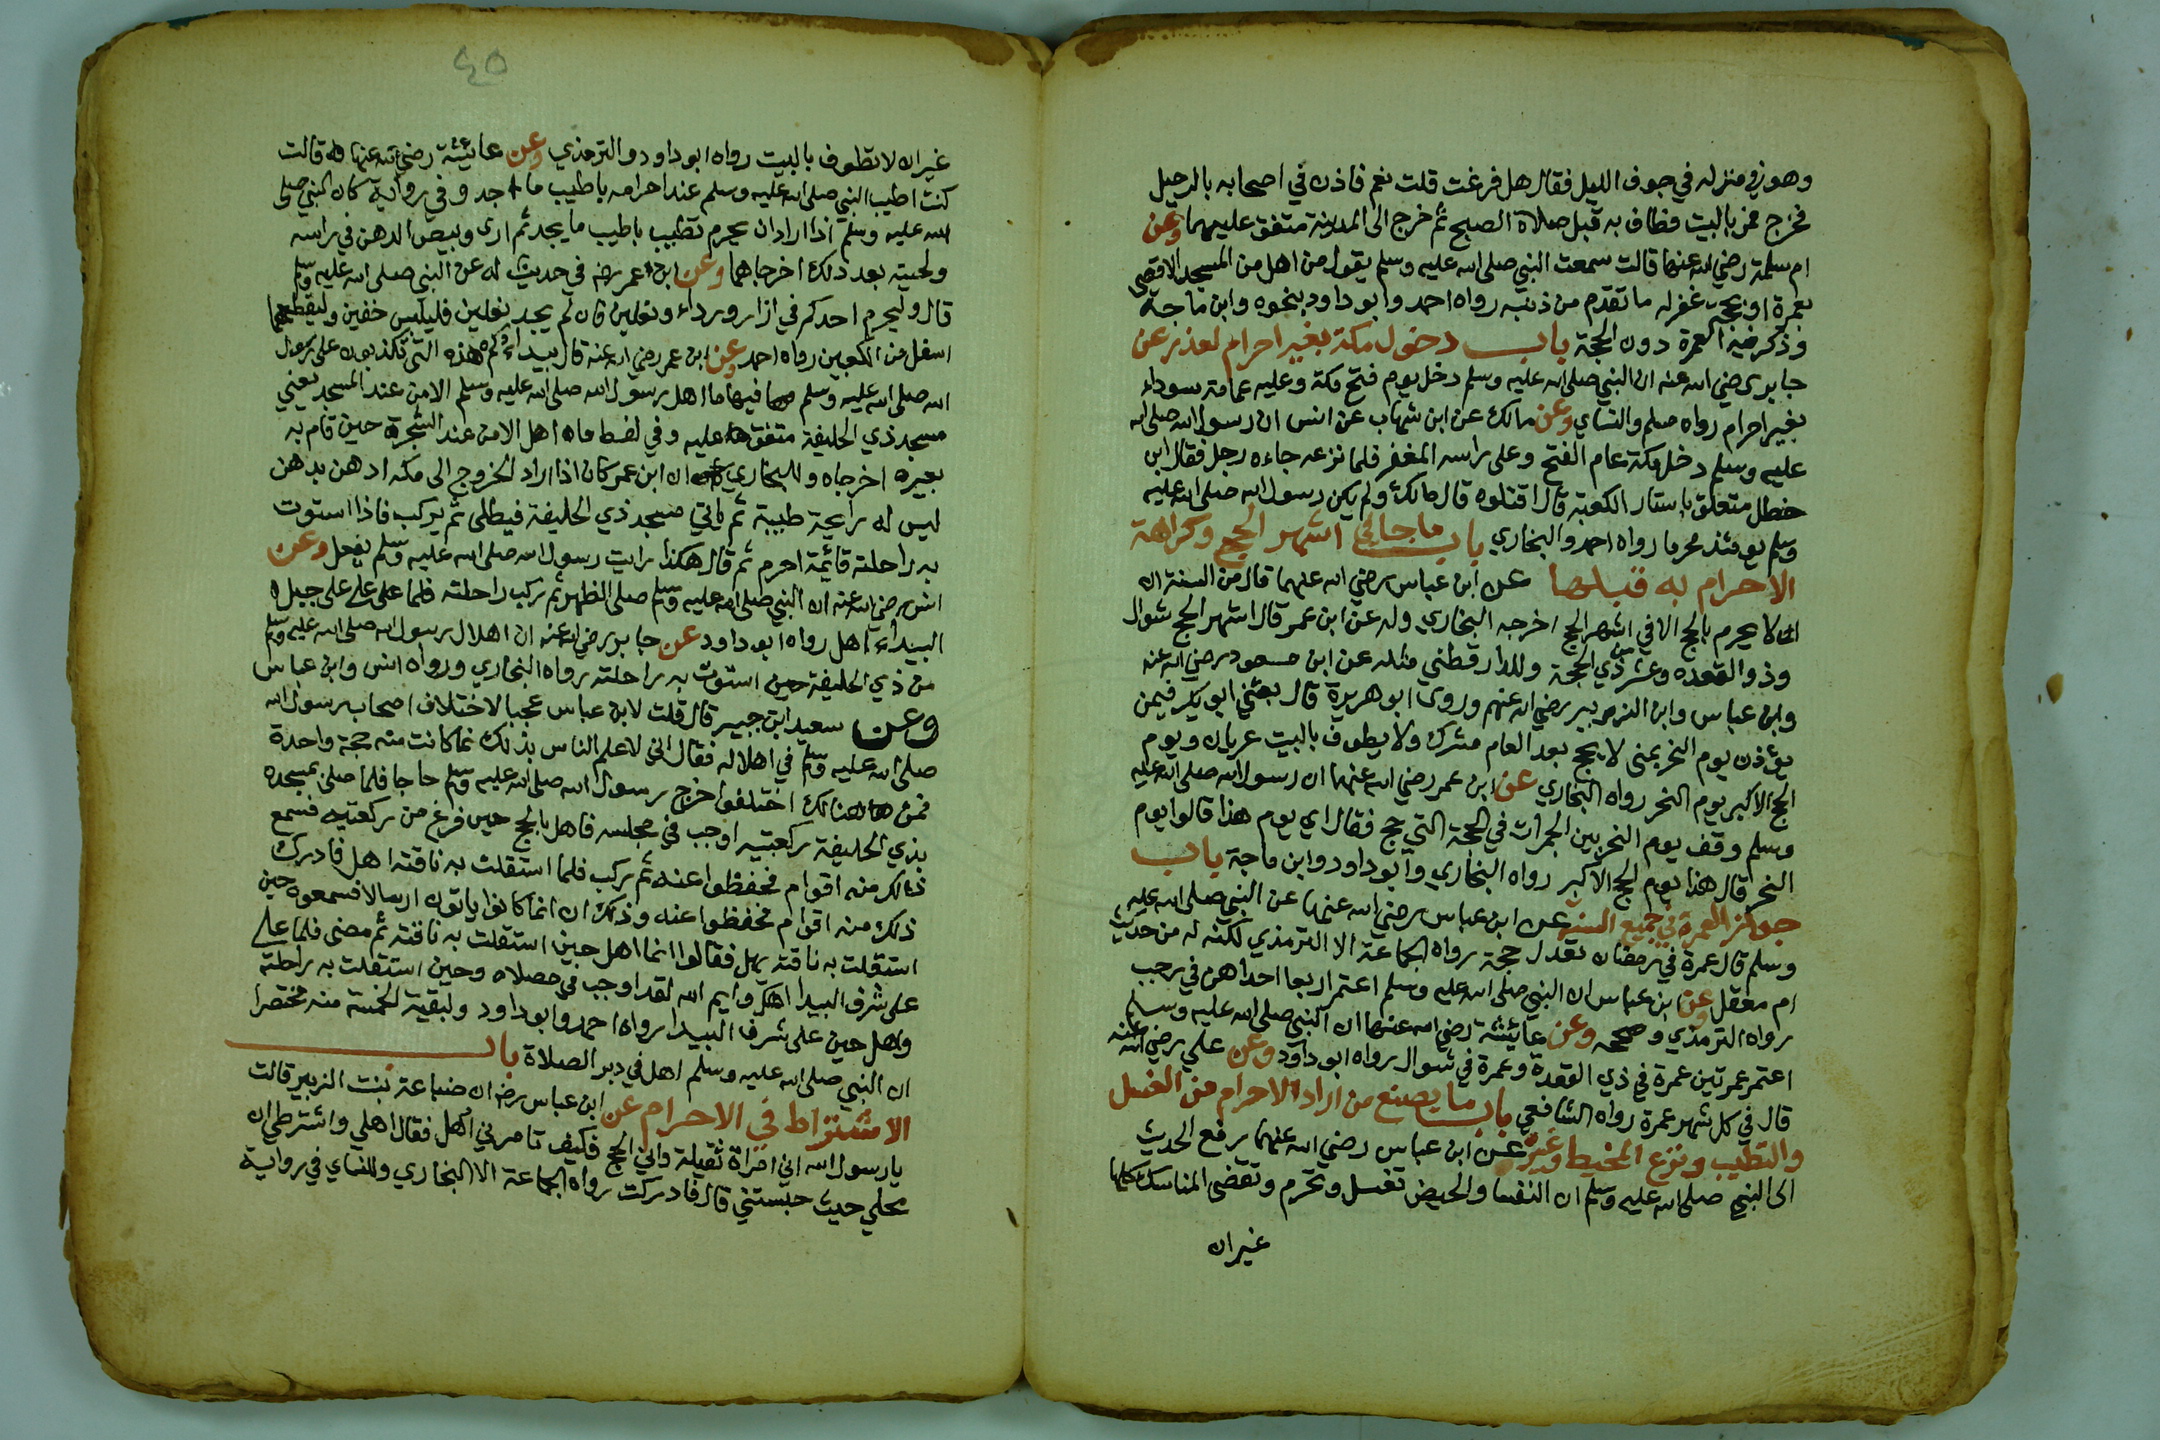 وهو في منزله في جوف الليل فقال هل فرغت قلت نعم فاذن في اصحابه بالرحيل
فخرج فمر بالبيت فطاف به قبل صلاة الصبح ثم خرج الى المدينة متفق عليهما وعن
ام سلمة رضي الله عنها قالت سمعت النبي صلى الله عليه وسلم يقول من اهل من المسجد الاقصى
بعمرة او بحجة غفر له ما تقدم من ذنبه رواه احمد وابو داود بنحوه وابن ماجة
وذكر فيه العمرة دون الحجة باب دخول مكة بغير احرام لعذر عن
جابر رضي الله عنه ان النبي صلى الله عليه وسلم دخل يوم فتح مكة وعليه عمامة سوداء
بغير احرام رواه مسلم والنساي وعن مالك عن ابن شهاب عن انس ان رسول الله صلى الله
عليه وسلم دخل مكة عام الفتح وعلى راسه المغفر فلما نزعه جاءه رجل فقال ابن
خطل متعلق باستار الكعبة قال اقتلوه قال مالك ولم يكن رسول الله صلى الله عليه
وسلم يومئذ محرما رواه احمد والبخاري باب ما جا في اشهر الحج وكراهة
الاحرام به قبلها عن ابن عباس رضي الله عنهما قال من السنة ان
لا يحرم بالحج الا في اشهر الحج اخرجه البخاري وله عن ابن عمر قال اشهر الحج شوال
وذو القعده وعشر من ذي الحجة وللدارقطني مثله عن ابن مسعود رضي الله عنه
وابن عباس وابن الزبير رضي الله عنهم وروى ابو هريرة قال بعثني ابو بكر فيمن
يؤذن يوم النحر بمنى لا يحج بعد العام مشرك ولا يطوف بالبيت عريان ويوم
الحج الاكبر يوم النحر رواه البخاري عن ابن عمر رضي الله عنهما ان رسول الله صلى الله عليه
وسلم وقف يوم النحر بين الجمرات في الحجة التي حج فقال اي يوم هذا قالوا يوم
النحر قال هذا يوم الحج الاكبر رواه البخاري وابو داود وابن ماجة باب
جواز العمرة في جميع السنة عن ابن عباس رضي الله عنهما عن النبي صلى الله عليه
وسلم قال عمرة في رمضان تعدل حجة رواه الجماعة الا الترمذي لكنه له من حديث
ام معقل وعن ابن عباس ان النبي صلى الله عليه وسلم اعتمر اربعا احداهن في رجب
رواه الترمذي وصححه وعن عايشة رضي الله عنها ان النبي صلى الله عليه وسلم
اعتمر عمرتين عمرة في ذي القعدة وعمرة في شوال رواه ابو داود وعن علي رضي الله عنه
قال في كل شهر عمرة رواه الشافعي باب ما يصنع من اراد الاحرام من الغسل
والتطيب ونزع المخيط وغيره عن ابن عباس رضي الله عنهما يرفع الحديث
الى النبي صلى الله عليه وسلم ان النفسا والحيض تغسل وتحرم وتقضي المناسك كلها
غير ان
٤٥
غير ان لا تطوف بالبيت رواه ابو داود والترمذي وعن عايشة رضي الله عنها قالت
كنت اطيب النبي صلى الله عليه وسلم عند احرامه باطيب ما اجد وفي رواية كان النبي صلى
الله عليه وسلم اذا اراد ان يحرم تطيب باطيب ما يجد ثم ارى وبيص الدهن في راسه
ولحيته بعد ذلك اخرجاهما وعن ابن عمر رضه في حديث له عن النبي صلى الله عليه وسلم
قال وليحرم احدكم في ازار ورداء ونعلين فان لم يجد نعلين فليلبس خفين وليقطعهما
اسفل من الكعبين رواه احمد وعن ابن عمر رضي الله عنه قال بيداؤكم هذه التي تكذبون على رسول
الله صلى الله عليه وسلم فيها ما اهل رسول الله صلى الله عليه وسلم الا من عند المسجد يعني
مسجد ذي الحليفة متفق عليه وفي لفظ ما اهل الا من عند الشجرة حين قام به
بعيره اخرجاه وللبخاري ان ابن عمر كان اذا اراد الخروج الى مكه ادهن بدهن
ليس له رايحة طيبة ثم ياتي مسجد ذي الحليفة فيصلى ثم يركب فاذا استوت
به راحلته قائمة احرم ثم قال هكذا رايت رسول الله صلى الله عليه وسلم يفعل وعن
انس رضي الله عنه ان النبي صلى الله عليه وسلم صلى الظهر ثم ركب راحلته فلما على على جبل
البيداء اهل رواه ابو داود عن جابر رضي الله عنه ان اهلال رسول الله صلى الله عليه وسلم
من ذي الحليفة حين استوت به راحلته رواه البخاري ورواه انس وابن عباس
وعن سعيد ابن جبير قال قلت لابن عباس عجبا لاختلاف اصحاب رسول الله
صلى الله عليه وسلم في اهلاله فقال اني لاعلم الناس بذلك نما كانت منه حجة واحدة
فمن هنالك اختلفوا خرج رسول الله صلى الله عليه وسلم حاجا فلما صلى بمسجده
بذي الحليفة ركعتيه اوجب في مجلسه فاهل بالحج حين فرغ من ركعتيه فسمع
ذالك منه اقوام فحفظوا عنه ثم ركب فلما استقلت به ناقته اهل فادرك
ذلك منه اقوام فحفظوا عنه وذلك ان انما كانوا ياتون ارسالا فسمعوه حين
استقلت به ناقته يهل فقالوا انما اهل حين استقلت به ناقته ثم مضى فلما على
على شرف البيدا اهل وايم الله لقد اوجب في مصلاه وحين استقلت به راحلته
واهل حين على شرف البيدا رواه احمد وابو داود ولبقية الخمسة منه مختصرا
ان النبي صلى الله عليه وسلم اهل في دبر الصلاة باب
الاشتراط في الاحرام عن ابن عباس رضه ان ضباعة بنت الزبير قالت
يا رسول الله اني امراة ثقيلة واني الحج فكيف تامرني اهل فقال اهلي واشترطي ان
محلي حيث حبستني قال فادركت رواه الجماعة الا البخاري وللنساي في رواية